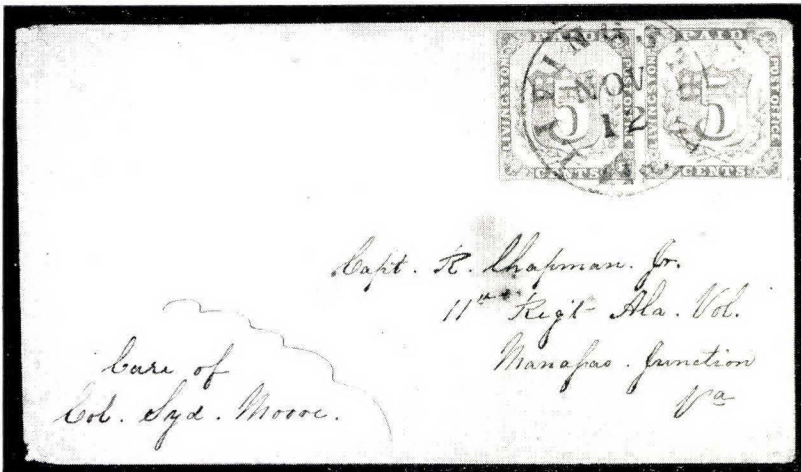 PAID
LIVINGSTON
POST OFFICE
5
CENTS
PAID
LIVINGSTON
POST OFFICE
5
CENTS
NOV
12
Capt. R. Chapman. Jr.
11th Reg't Ala. Vol.
Manassas. Junction
Va
Care of
Col. Syd. Moore.